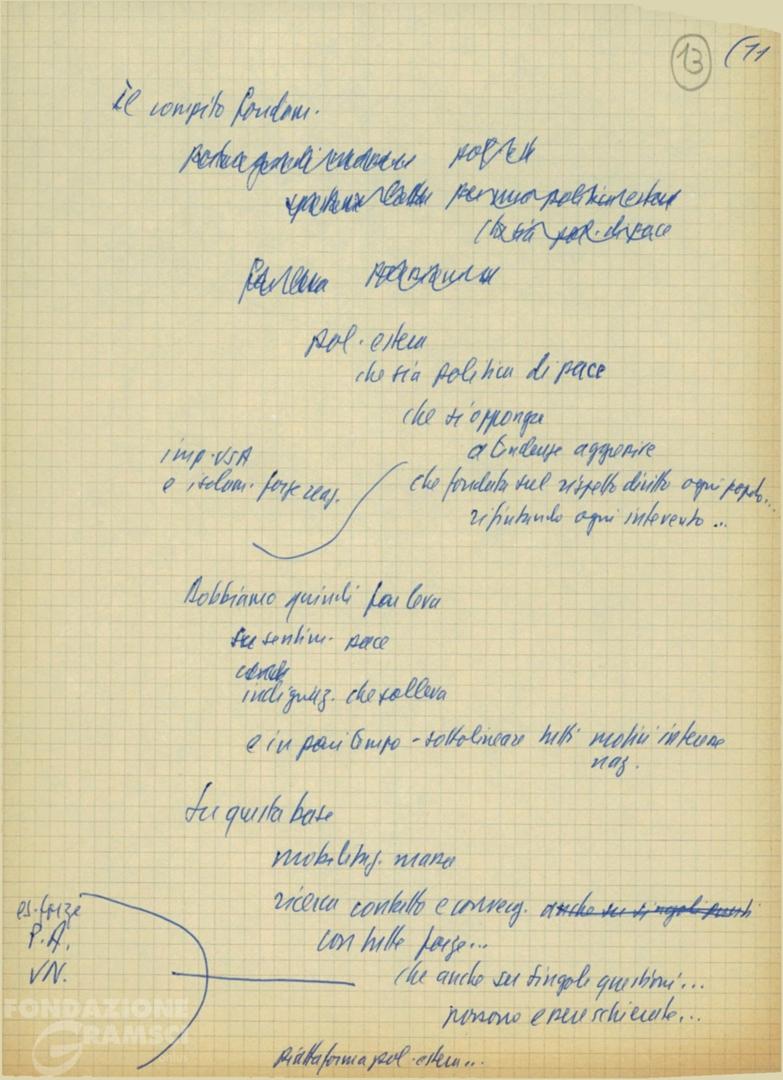 13 (11
Il compito fondam.
pol. est.
per una politica estera
che sia pol. di pace
far leva
pol. estera
che sia politica di pace
che si opponga
a tendenze aggressive
imp. USA
e isolam. forze reaz.
che fondata sul rispetto diritto ogni popolo...
rifiutando ogni intervento...
Dobbiamo quindi far leva
su sentim. pace
indignaz. che solleva
e in pari tempo - sottolineare tutti motivi interesse
naz.
Su questa base
mobilitaz. massa
ricerca contatto e converg. anche su singoli punti
es. forze
P.A.
VN.
con tutte forze...
che anche su singole questioni...
possono essere schierate...
piattaforma pol. estera...
FONDAZIONE
GRAMSCI